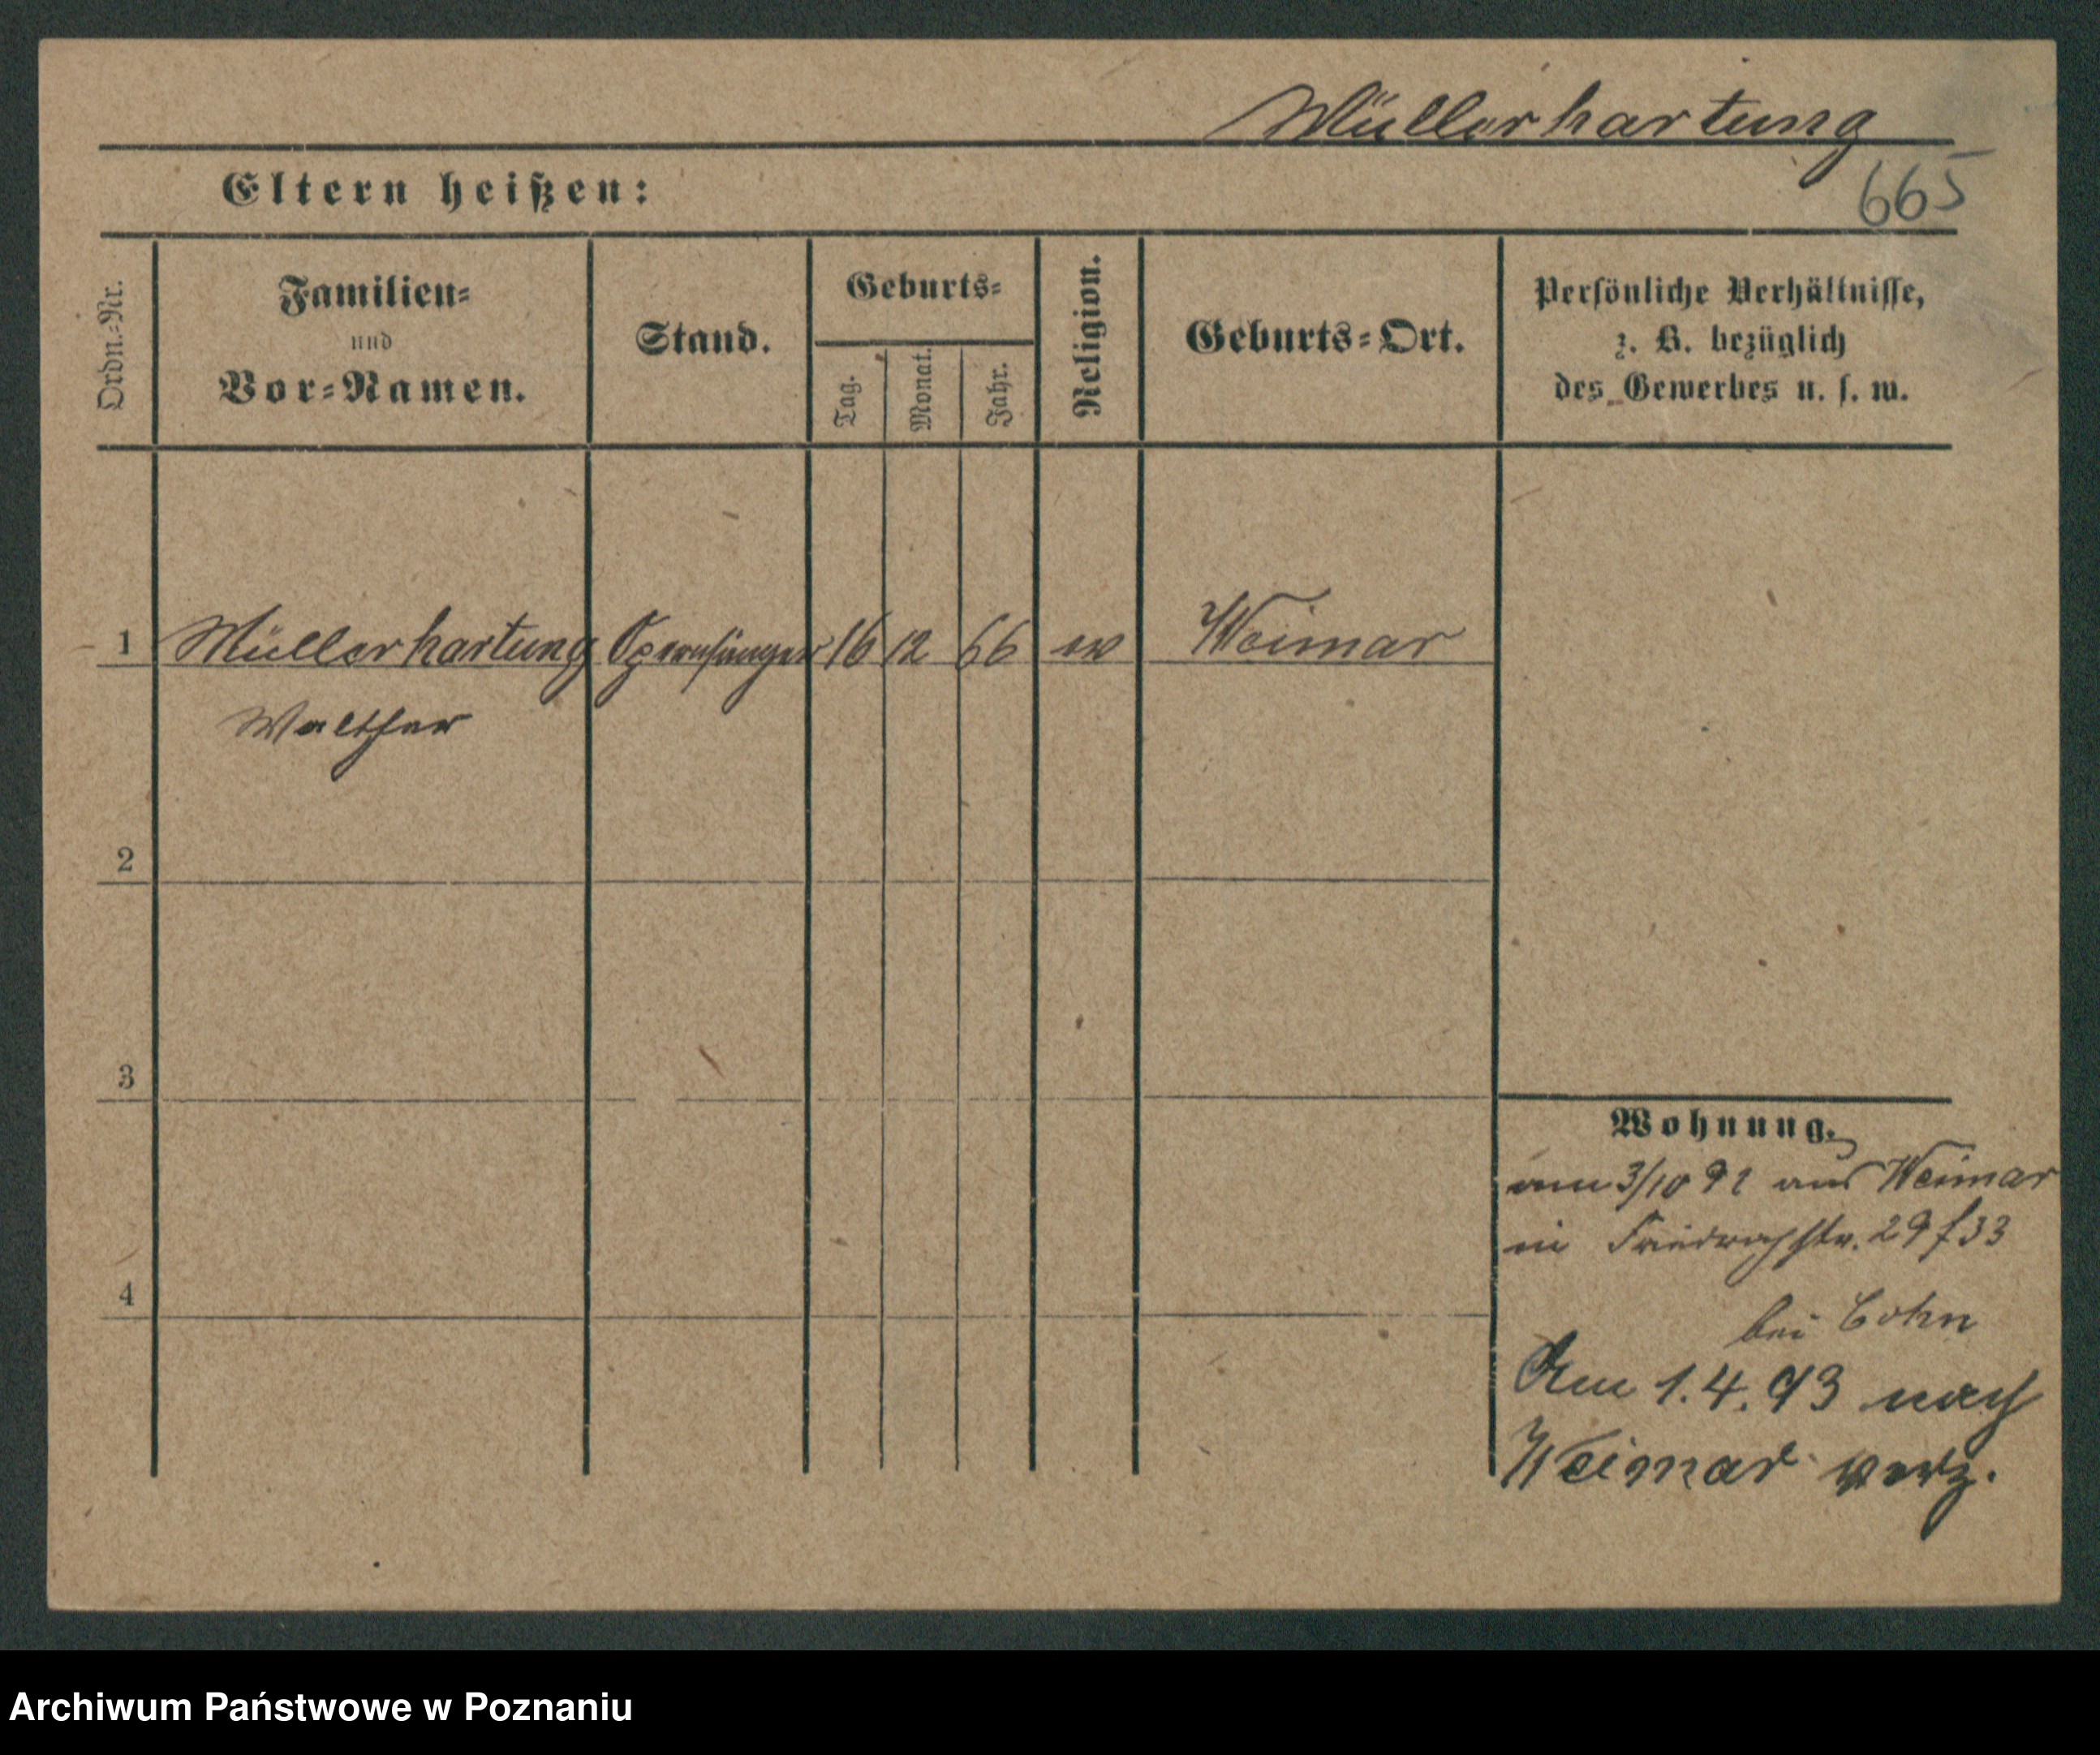 Müllerhartung
665
Eltern heißen:
Ordn.=Nr.
Familien=
und
Vor=Namen.
Stand.
Geburts=
Tag.
Monat.
Jahr.
Religion.
Geburts=Ort.
Persönliche Verhältnisse,
z. B. bezüglich
des Gewerbes u. s. w.
1 Müllerhartung Opernsänger 16 12 66 ev Weimar
Walther
2
3
4
Wohnung.
am 3/10 92 aus Weimar
in Friedrichstr. 29 f 33
bei Cohn
Am 1.4.93 nach
Weimar verz.
Archiwum Państwowe w Poznaniu